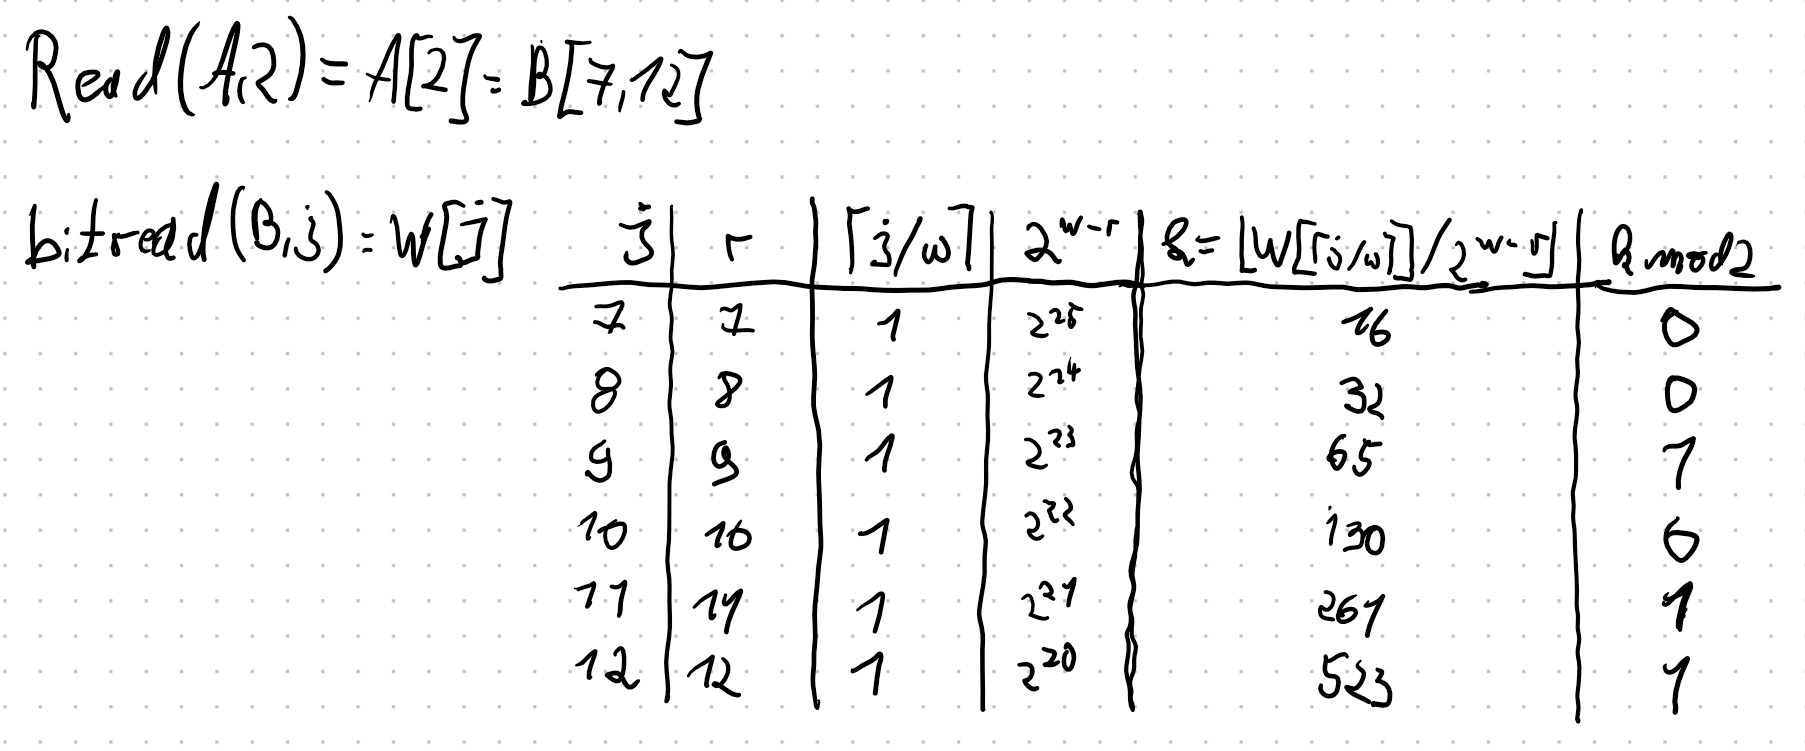 Read(A,2) = A[2] = B[7,12]
bitread(B,j) = W[j]
j | r | ⌈j/w⌉ | 2^{w-r} | k = ⌊W[⌈j/w⌉]/2^{w-r}⌋ | k mod 2
7 | 7 | 1 | 2^{25} | 16 | 0
8 | 8 | 1 | 2^{24} | 32 | 0
9 | 9 | 1 | 2^{23} | 65 | 1
10 | 10 | 1 | 2^{22} | 130 | 0
11 | 11 | 1 | 2^{21} | 261 | 1
12 | 12 | 1 | 2^{20} | 523 | 1